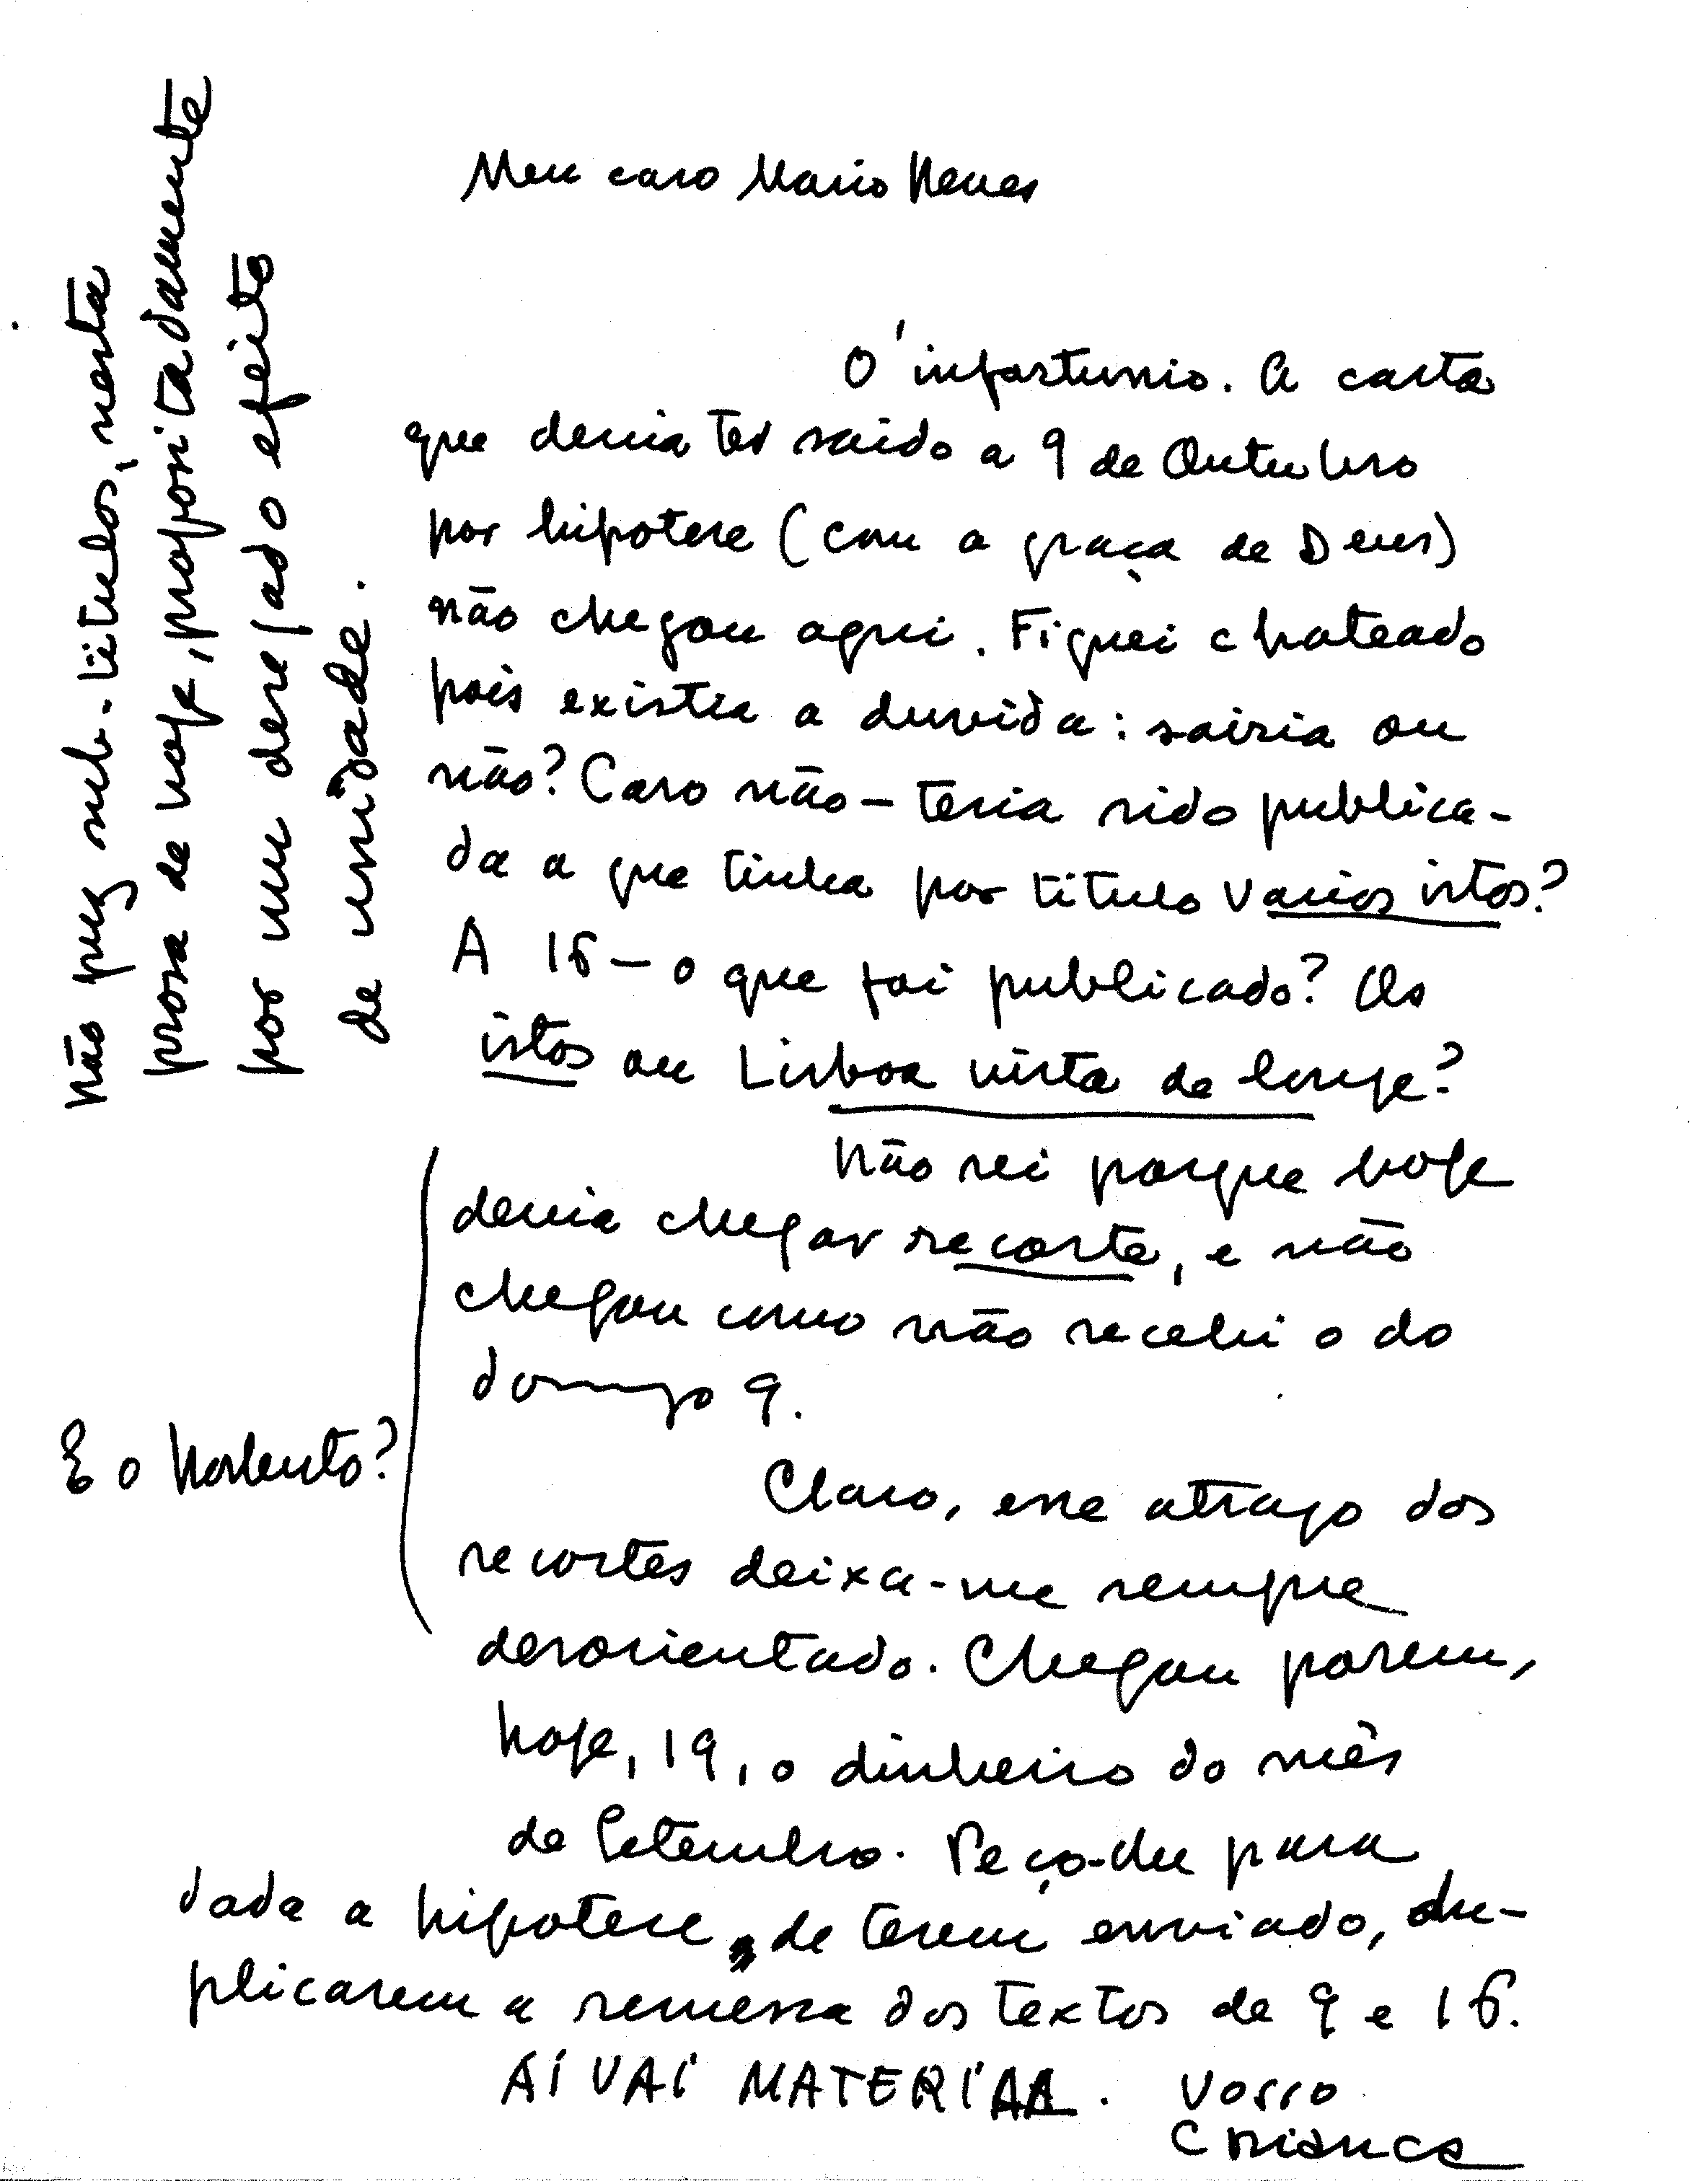 Meu caro Mario Neves
O' infortunio. A carta
que devia ter saido a 9 de Outubro
por hipotese (com a graça de Deus)
não chegou aqui. Fiquei chateado
pois existia a duvida: sairia ou
não? Caso não - teria sido publica-
da a que tinha por titulo Varios istos?
A 16 - o que foi publicado? Os
istos ou Lisboa vista de longe?
Não sei porque hoje
devia chegar recorte, e não
chegou como não recebi o do
domingo 9.
Claro, esse atrazo dos
recortes deixa-me sempre
desorientado. Chegou porem,
hoje, 19, o dinheiro do mês
de Setembro. Peço-lhe para
dada a hipotese, de terem enviado, du-
plicarem a remessa dos textos de 9 e 16.
AÍ VAÍ MATERÍAL. Vosso
E o Norberto?
Não puz sub-titulos, nesta
prosa de hoje, propositadamente
por um desejado efeito
de unidade.